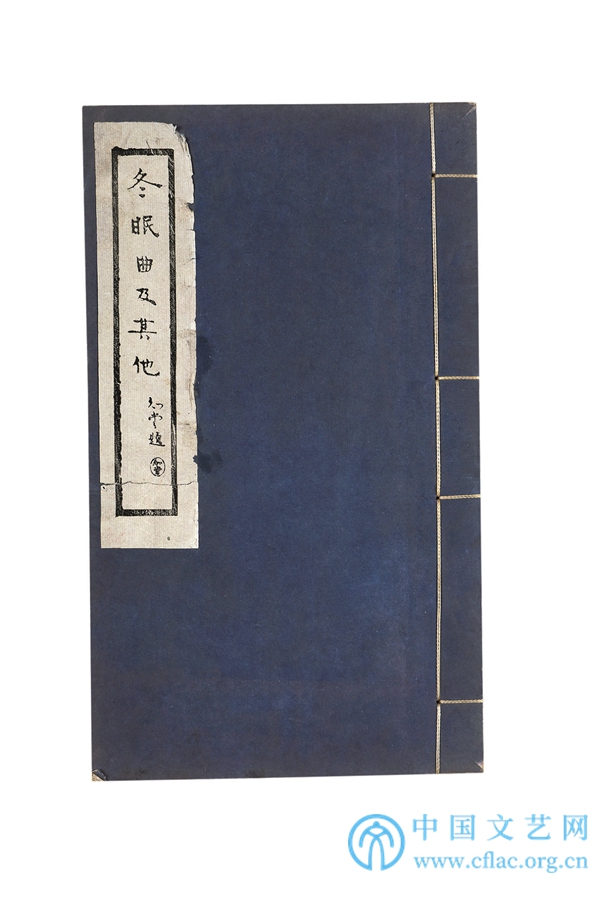 冬眠曲及其他
知堂題
知堂
中国文艺网
www.cflac.org.cn